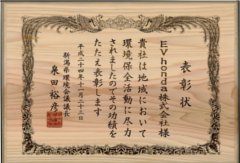 表彰状
EVhonda株式会社様
貴社は地域において
環境保全活動に尽力
されましたのでその功績を
たたえ表彰します
平成二十四年十二月二十三日
新潟県環境会議議長
泉田裕彦